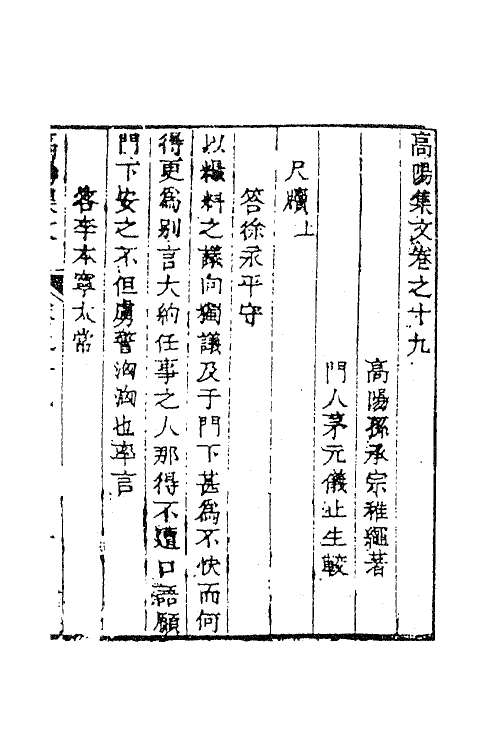 高陽集文卷之十九
高陽孫承宗稚繩著
門人茅元儀止生較
尺牘上
答徐永平守
以糧料之議向獨議及于門下甚爲不快而何
得更爲別言大約任事之人那得不遭口語願
門下安之不但虜警洶洶也率言
答李本寧太常